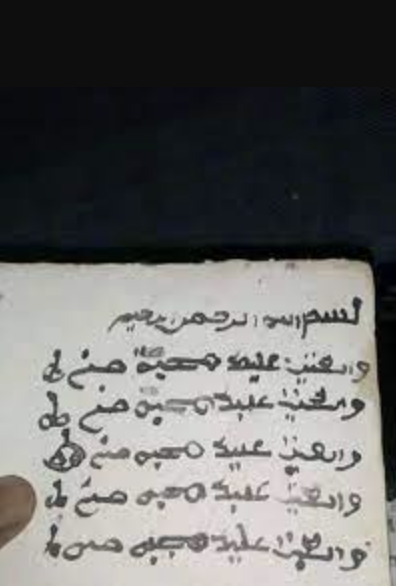 بسم الله الرحمن رحيم
والقيت عليك محبة مني
والقيت عليك محبة مني
والقيت عليك محبة مني
والقيت عليك محبة مني
والقيت عليك محبة مني